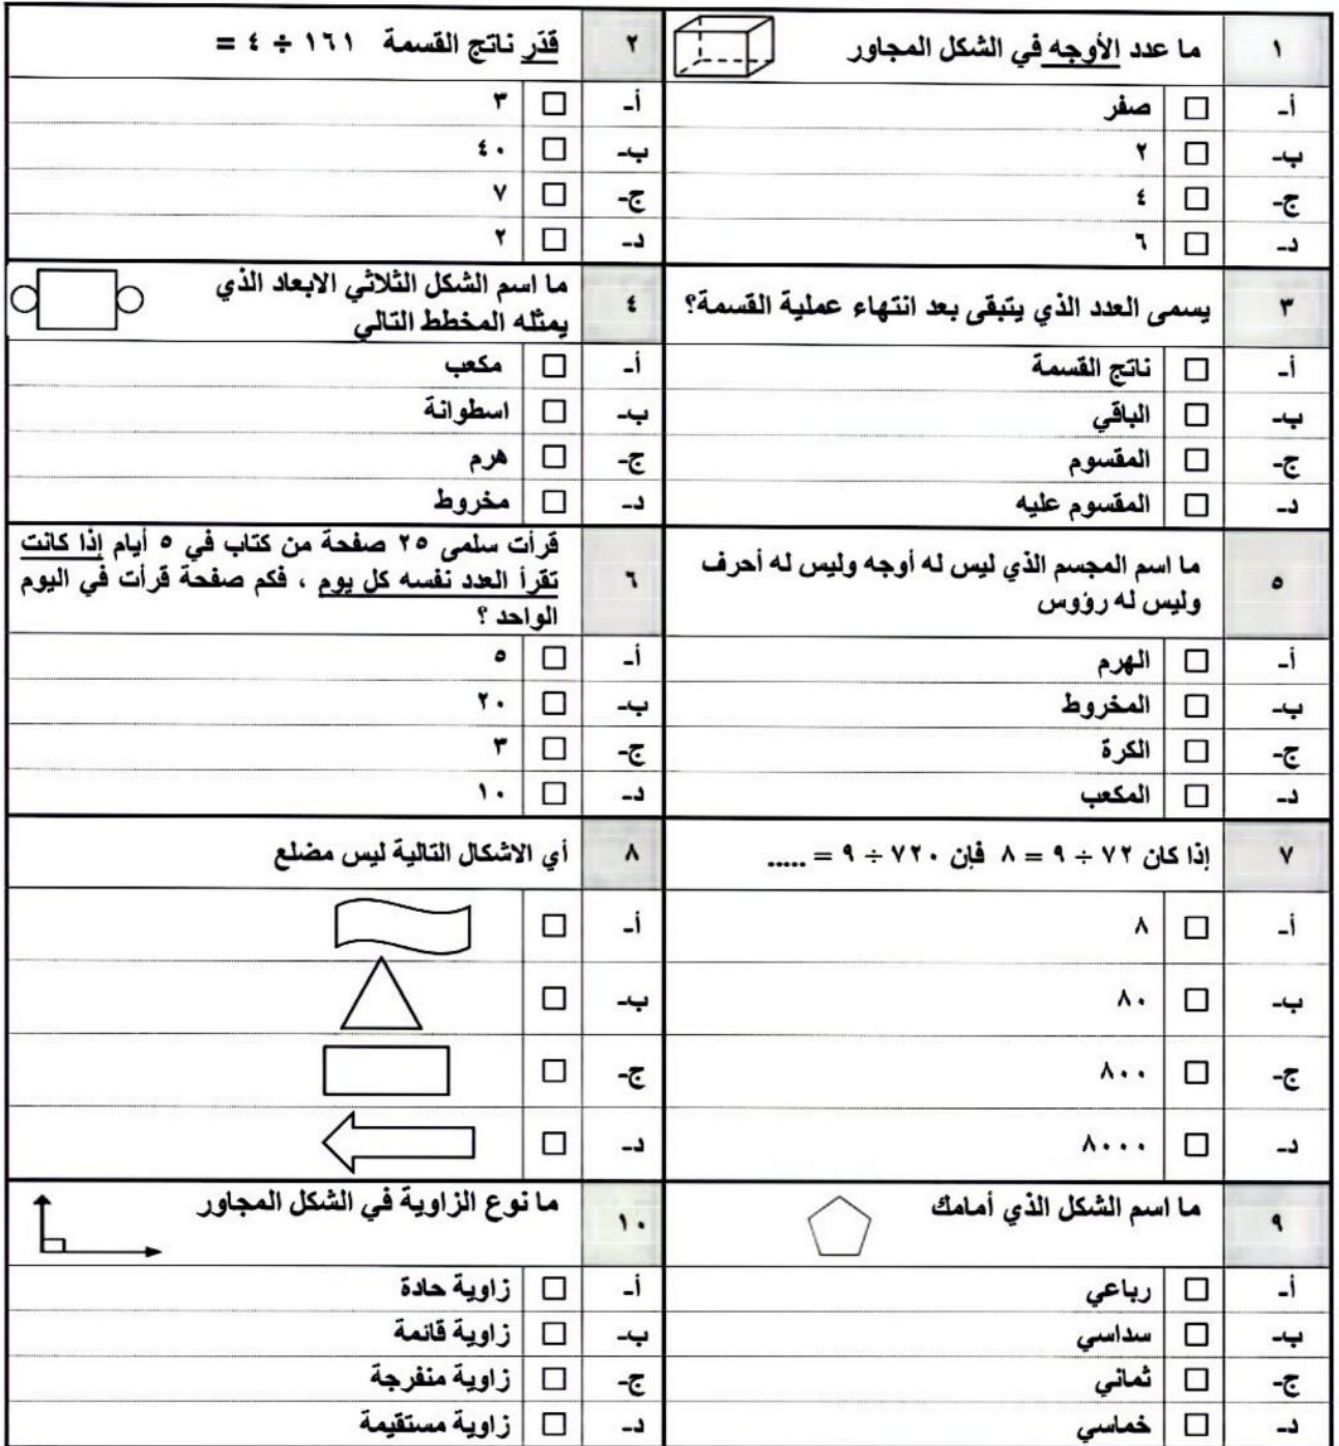 ١ ما عدد الأوجه في الشكل المجاور
أ- صفر
ب- ٢
ج- ٤
د- ٦
٢ قدّر ناتج القسمة ١٦١ ÷ ٤ =
أ- ٣
ب- ٤٠
ج- ٧
د- ٢
٣ يسمى العدد الذي يتبقى بعد انتهاء عملية القسمة؟
أ- ناتج القسمة
ب- الباقي
ج- المقسوم
د- المقسوم عليه
٤ ما اسم الشكل الثلاثي الابعاد الذي
يمثله المخطط التالي
أ- مكعب
ب- اسطوانة
ج- هرم
د- مخروط
٥ ما اسم المجسم الذي ليس له أوجه وليس له أحرف
وليس له رؤوس
أ- الهرم
ب- المخروط
ج- الكرة
د- المكعب
٦ قرأت سلمى ٢٥ صفحة من كتاب في ٥ أيام إذا كانت
تقرأ العدد نفسه كل يوم ، فكم صفحة قرأت في اليوم
الواحد ؟
أ- ٥
ب- ٢٠
ج- ٣
د- ١٠
٧ إذا كان ٧٢ ÷ ٩ = ٨ فإن ٧٢٠ ÷ ٩ = .....
أ- ٨
ب- ٨٠
ج- ٨٠٠
د- ٨٠٠٠
٨ أي الاشكال التالية ليس مضلع
أ-
ب-
ج-
د-
٩ ما اسم الشكل الذي أمامك
أ- رباعي
ب- سداسي
ج- ثماني
د- خماسي
١٠ ما نوع الزاوية في الشكل المجاور
أ- زاوية حادة
ب- زاوية قائمة
ج- زاوية منفرجة
د- زاوية مستقيمة